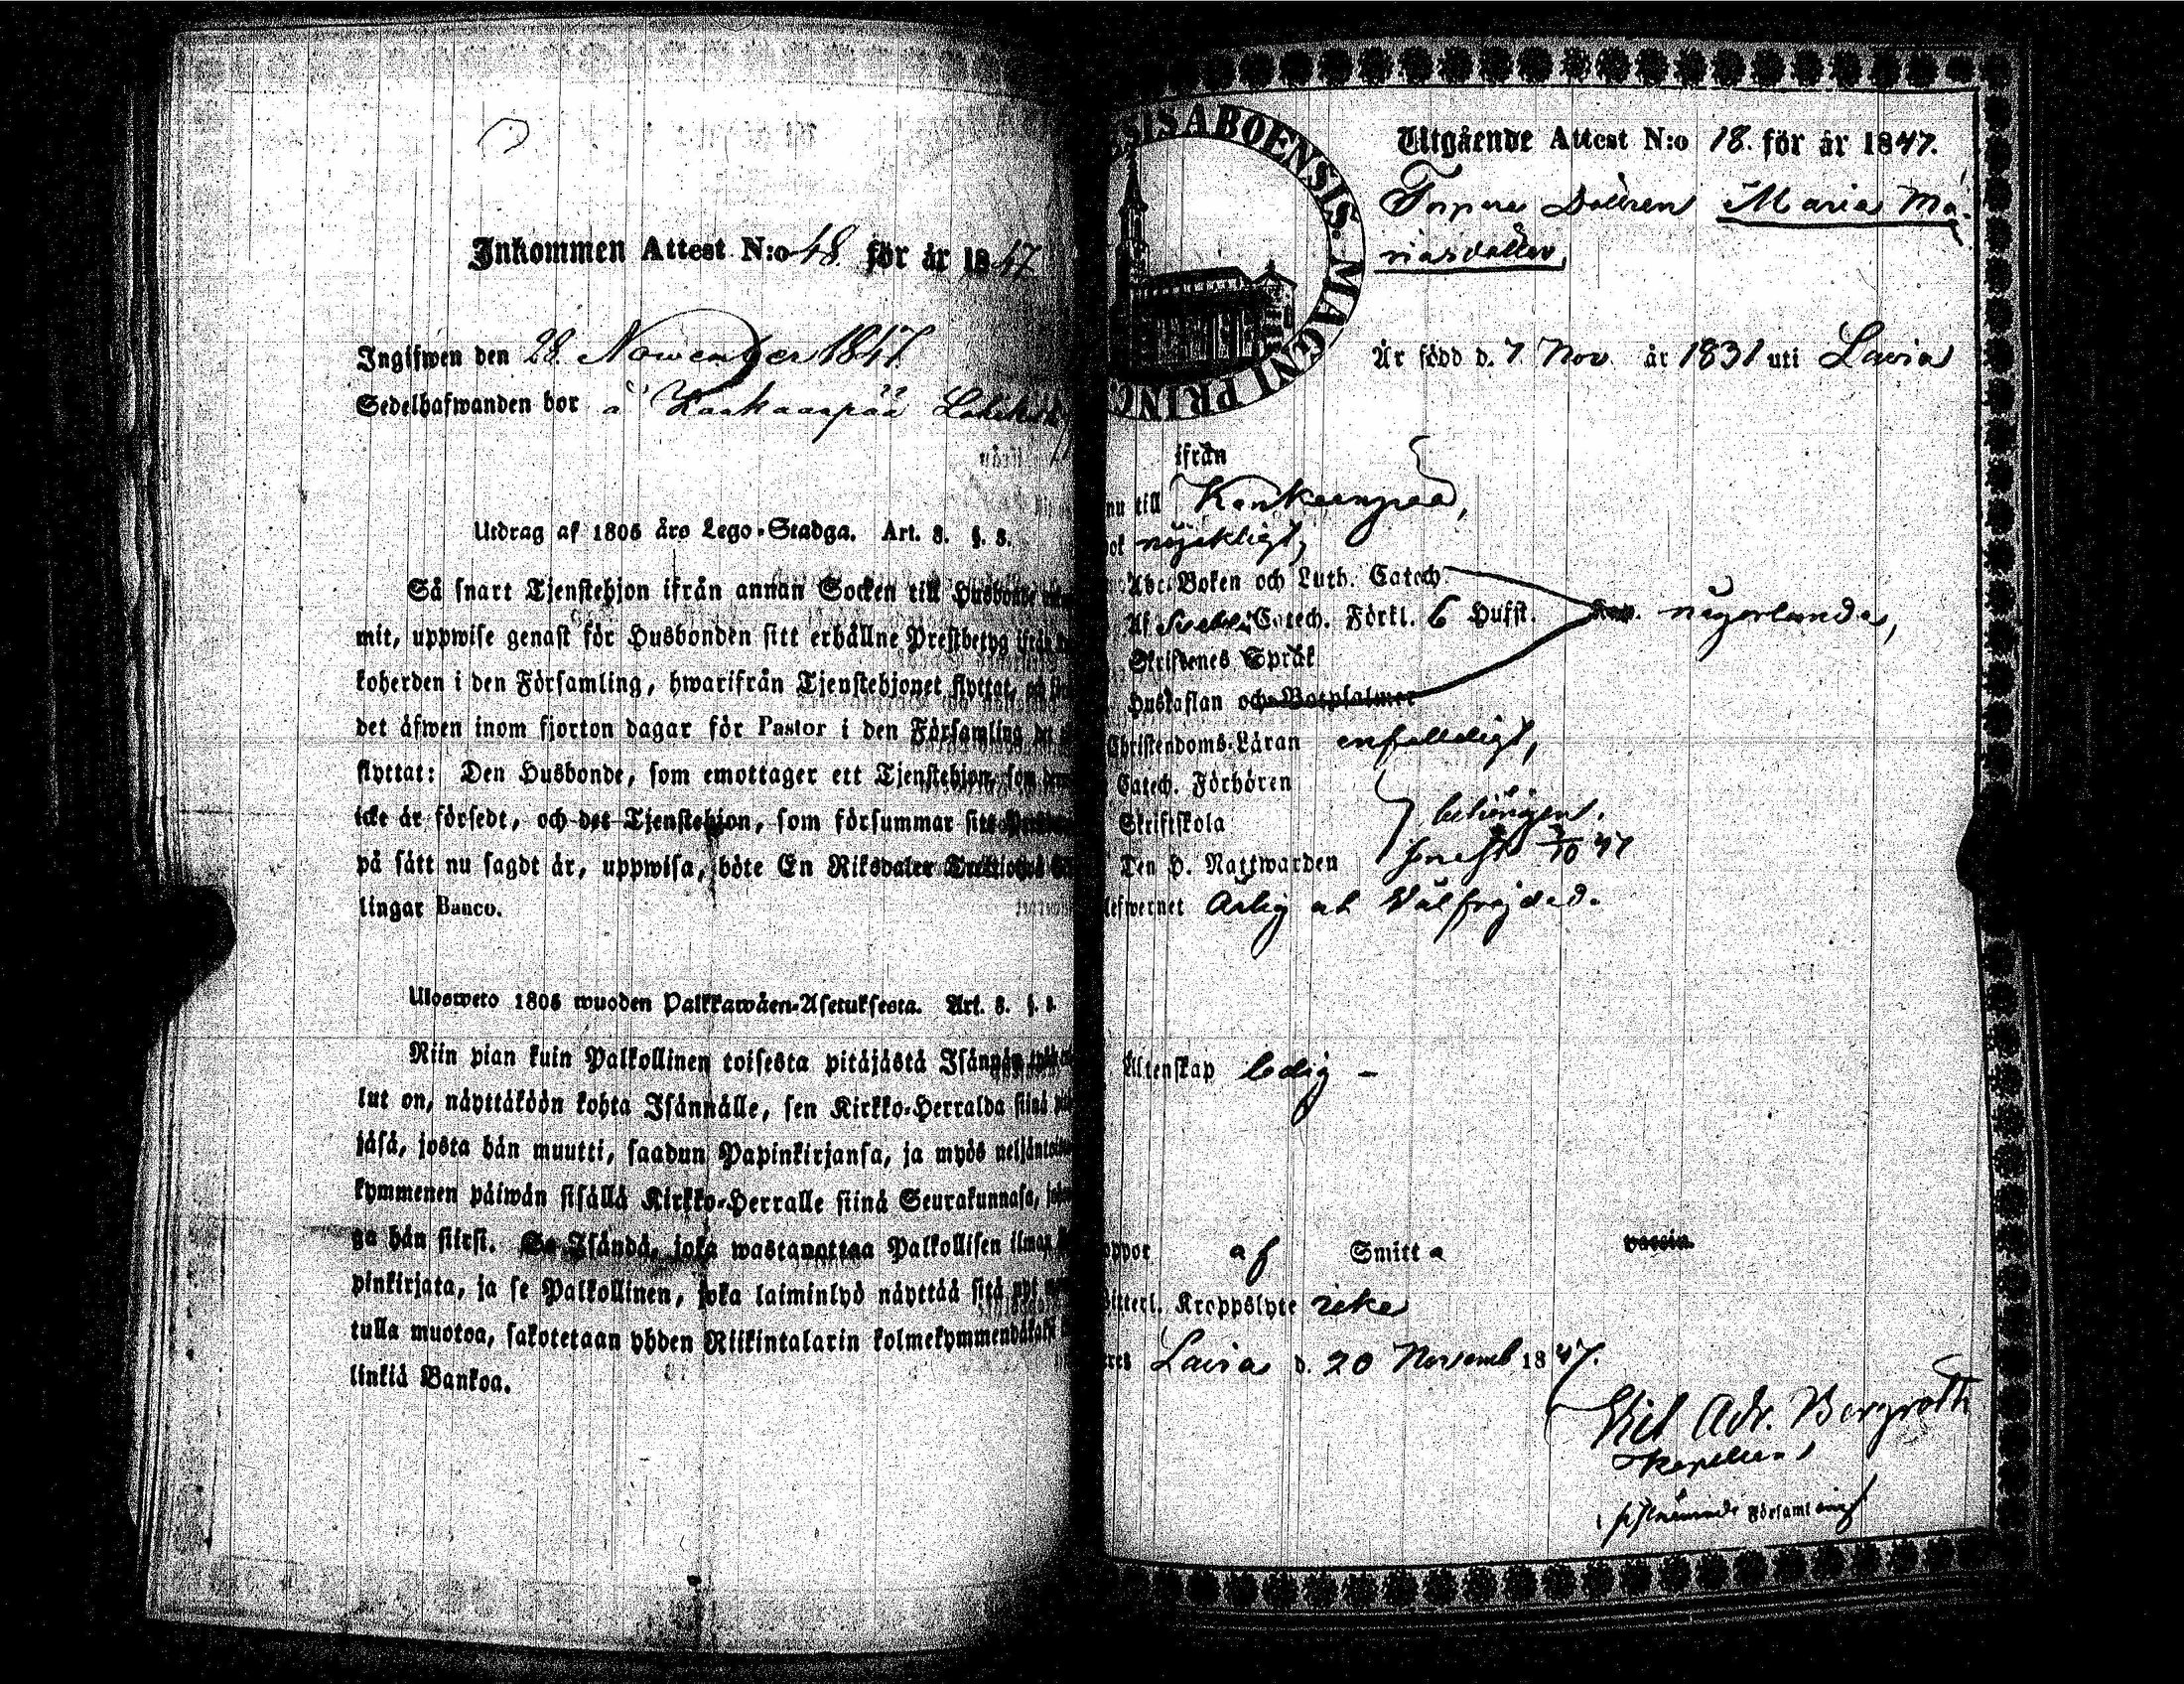 Inkommen Attest N:o 48. för år 1847
Ingifwen den 28. November 1847.
Sedelhafwanden bor å Kankaanpää
Utdrag af 1805 års Lego-Stadga. Art. 8. §. 8.
Så snart Tjenstehjon ifrån annan Socken till Husbonde
mit, uppwise genast för Husbonden sitt erhållne Prestbetyg ifrån
koherden i den Församling, hwarifrån Tjenstehjonet flyttat,
det äfwen inom fjorton dagar för Pastor i den Församling
flyttat: Den Husbonde, som emottager ett Tjenstehjon, som
icke är försedt, och det Tjenstehjon, som försummar sitt
på sätt nu sagdt är, uppwisa, böte En Riksdaler
lingar Banco.
Ulosweto 1805 wuoden Palkkawäen-Asetuksesta. Art. 8. §. 8.
Niin pian kuin Palkollinen toisesta pitäjästä Isännän
lut on, näyttäköön kohta Isännälle, sen Kirkko-Herralda siinä
jäsä, josta hän muutti, saadun Papinkirjansa, ja myös
kymmenen päiwän sisällä Kirkko-Herralle siinä Seurakunnasa,
ga hän siirsi. Se Isändä, joka wastanottaa Palkollisen ilman
pinkirjata, ja se Palkollinen, joka laiminlyö näyttää sitä nyt
tulla muotoa, sakotetaan yhden Riikintalarin kolmekymmendäkahd
linkiä Bankoa.
SISABOENSIS. MAGNI PRINC
Utgående Attest N:o 18. för år 1847.
Dottren Maria Ma-
riasdotter,
Är född d. 7 Nov. år 1831 uti Lavia
ifrån
nu till Kankaanpää,
ok nöjaktigt,
Abc-Boken och Luth. Catech.
Af Catech. Förkl. 6 Hufst.
Skriftenes Språk
Hustaflan och Botpsalmer
Christendoms-Läran enfaldigt,
Catech. Förhören
Skriftskola behörigen.
Ten H. Nattwarden 47
lefwernet Ärlig och Välfrejdad.
Äktenskap ledig –
oppor af Smitta vaccin.
itterl. Kroppslyte icke
Lavia d. 20 Novemb. 1847.
Adr. Bergroth
Kapellan
i Församling